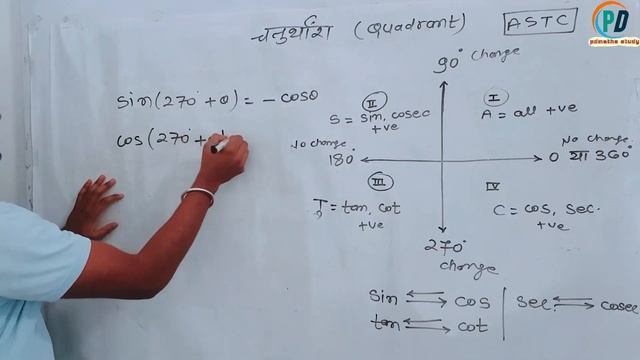 चतुर्थांश (Quadrant)
ASTC
PD
pdmaths study
90° change
sin(270° + θ) = - cosθ
cos(270° +
II
S = sin, cosec
+ve
I
A = all +ve
No change
180°
No change
0 या 360°
III
T = tan, cot
+ve
IV
C = cos, sec.
+ve
270°
change
sin ⇌ cos
tan ⇌ cot
sec ⇌ cosec